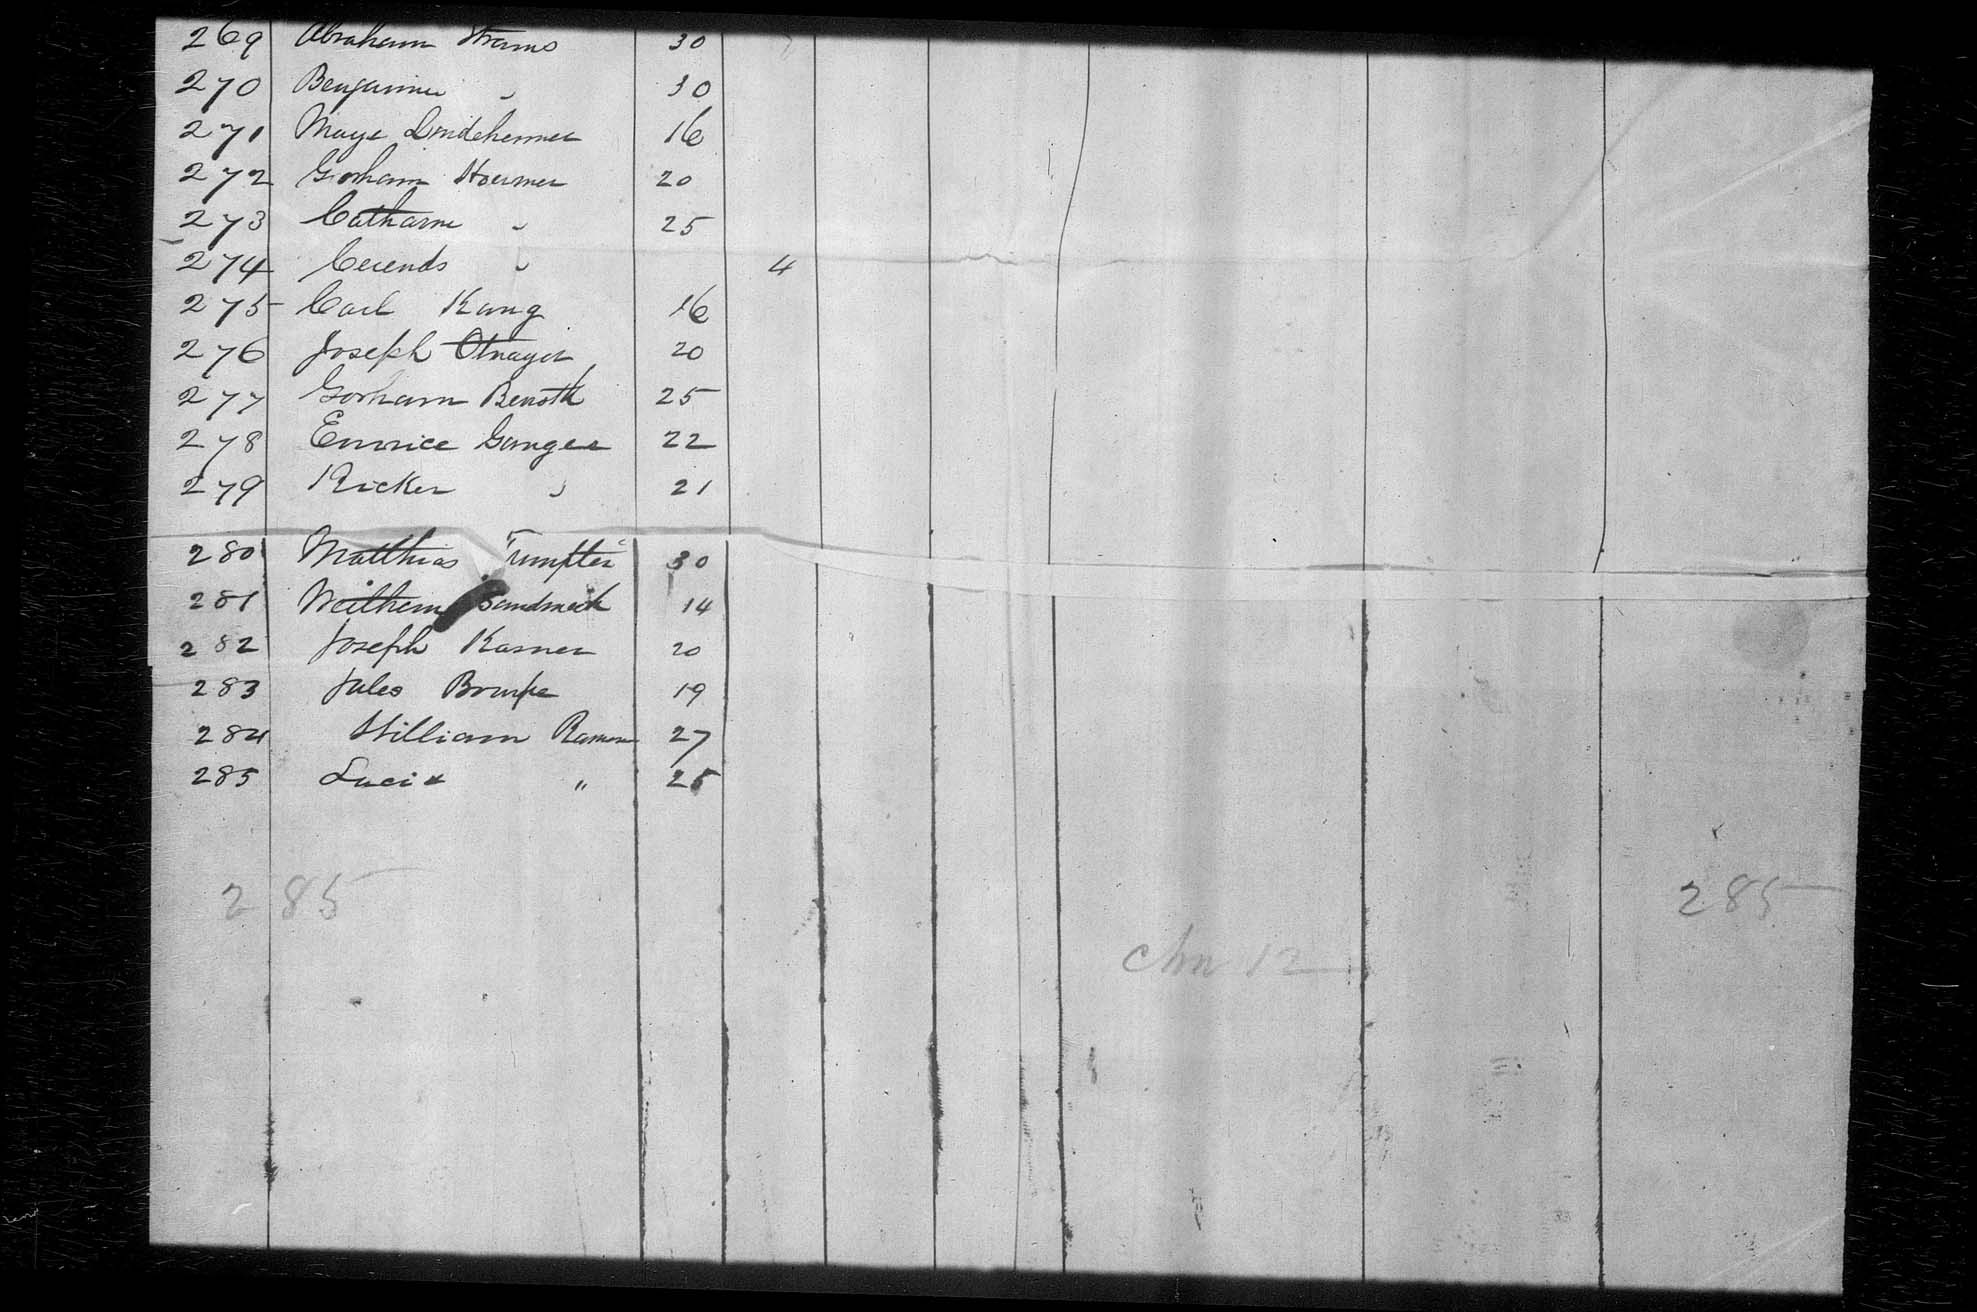 269 Abraham Strams 30
270 Benjamin " 30
271 Maye Lindehermer 16
272 Gorham Hoermer 20
273 Catharne " 25
274 Cecends " 4
275 Carl Kang 16
276 Joseph Otmayer 20
277 Gorham Benoth 25
278 Emmrice Ganger 22
279 Ricker " 21
280 Matthias Trumpter 30
281 Weithem Sandmeck 14
282 Joseph Kasner 20
283 Jules Brumpe 19
284 William Ramon 27
285 Lucia " 25
285 285
chn 12